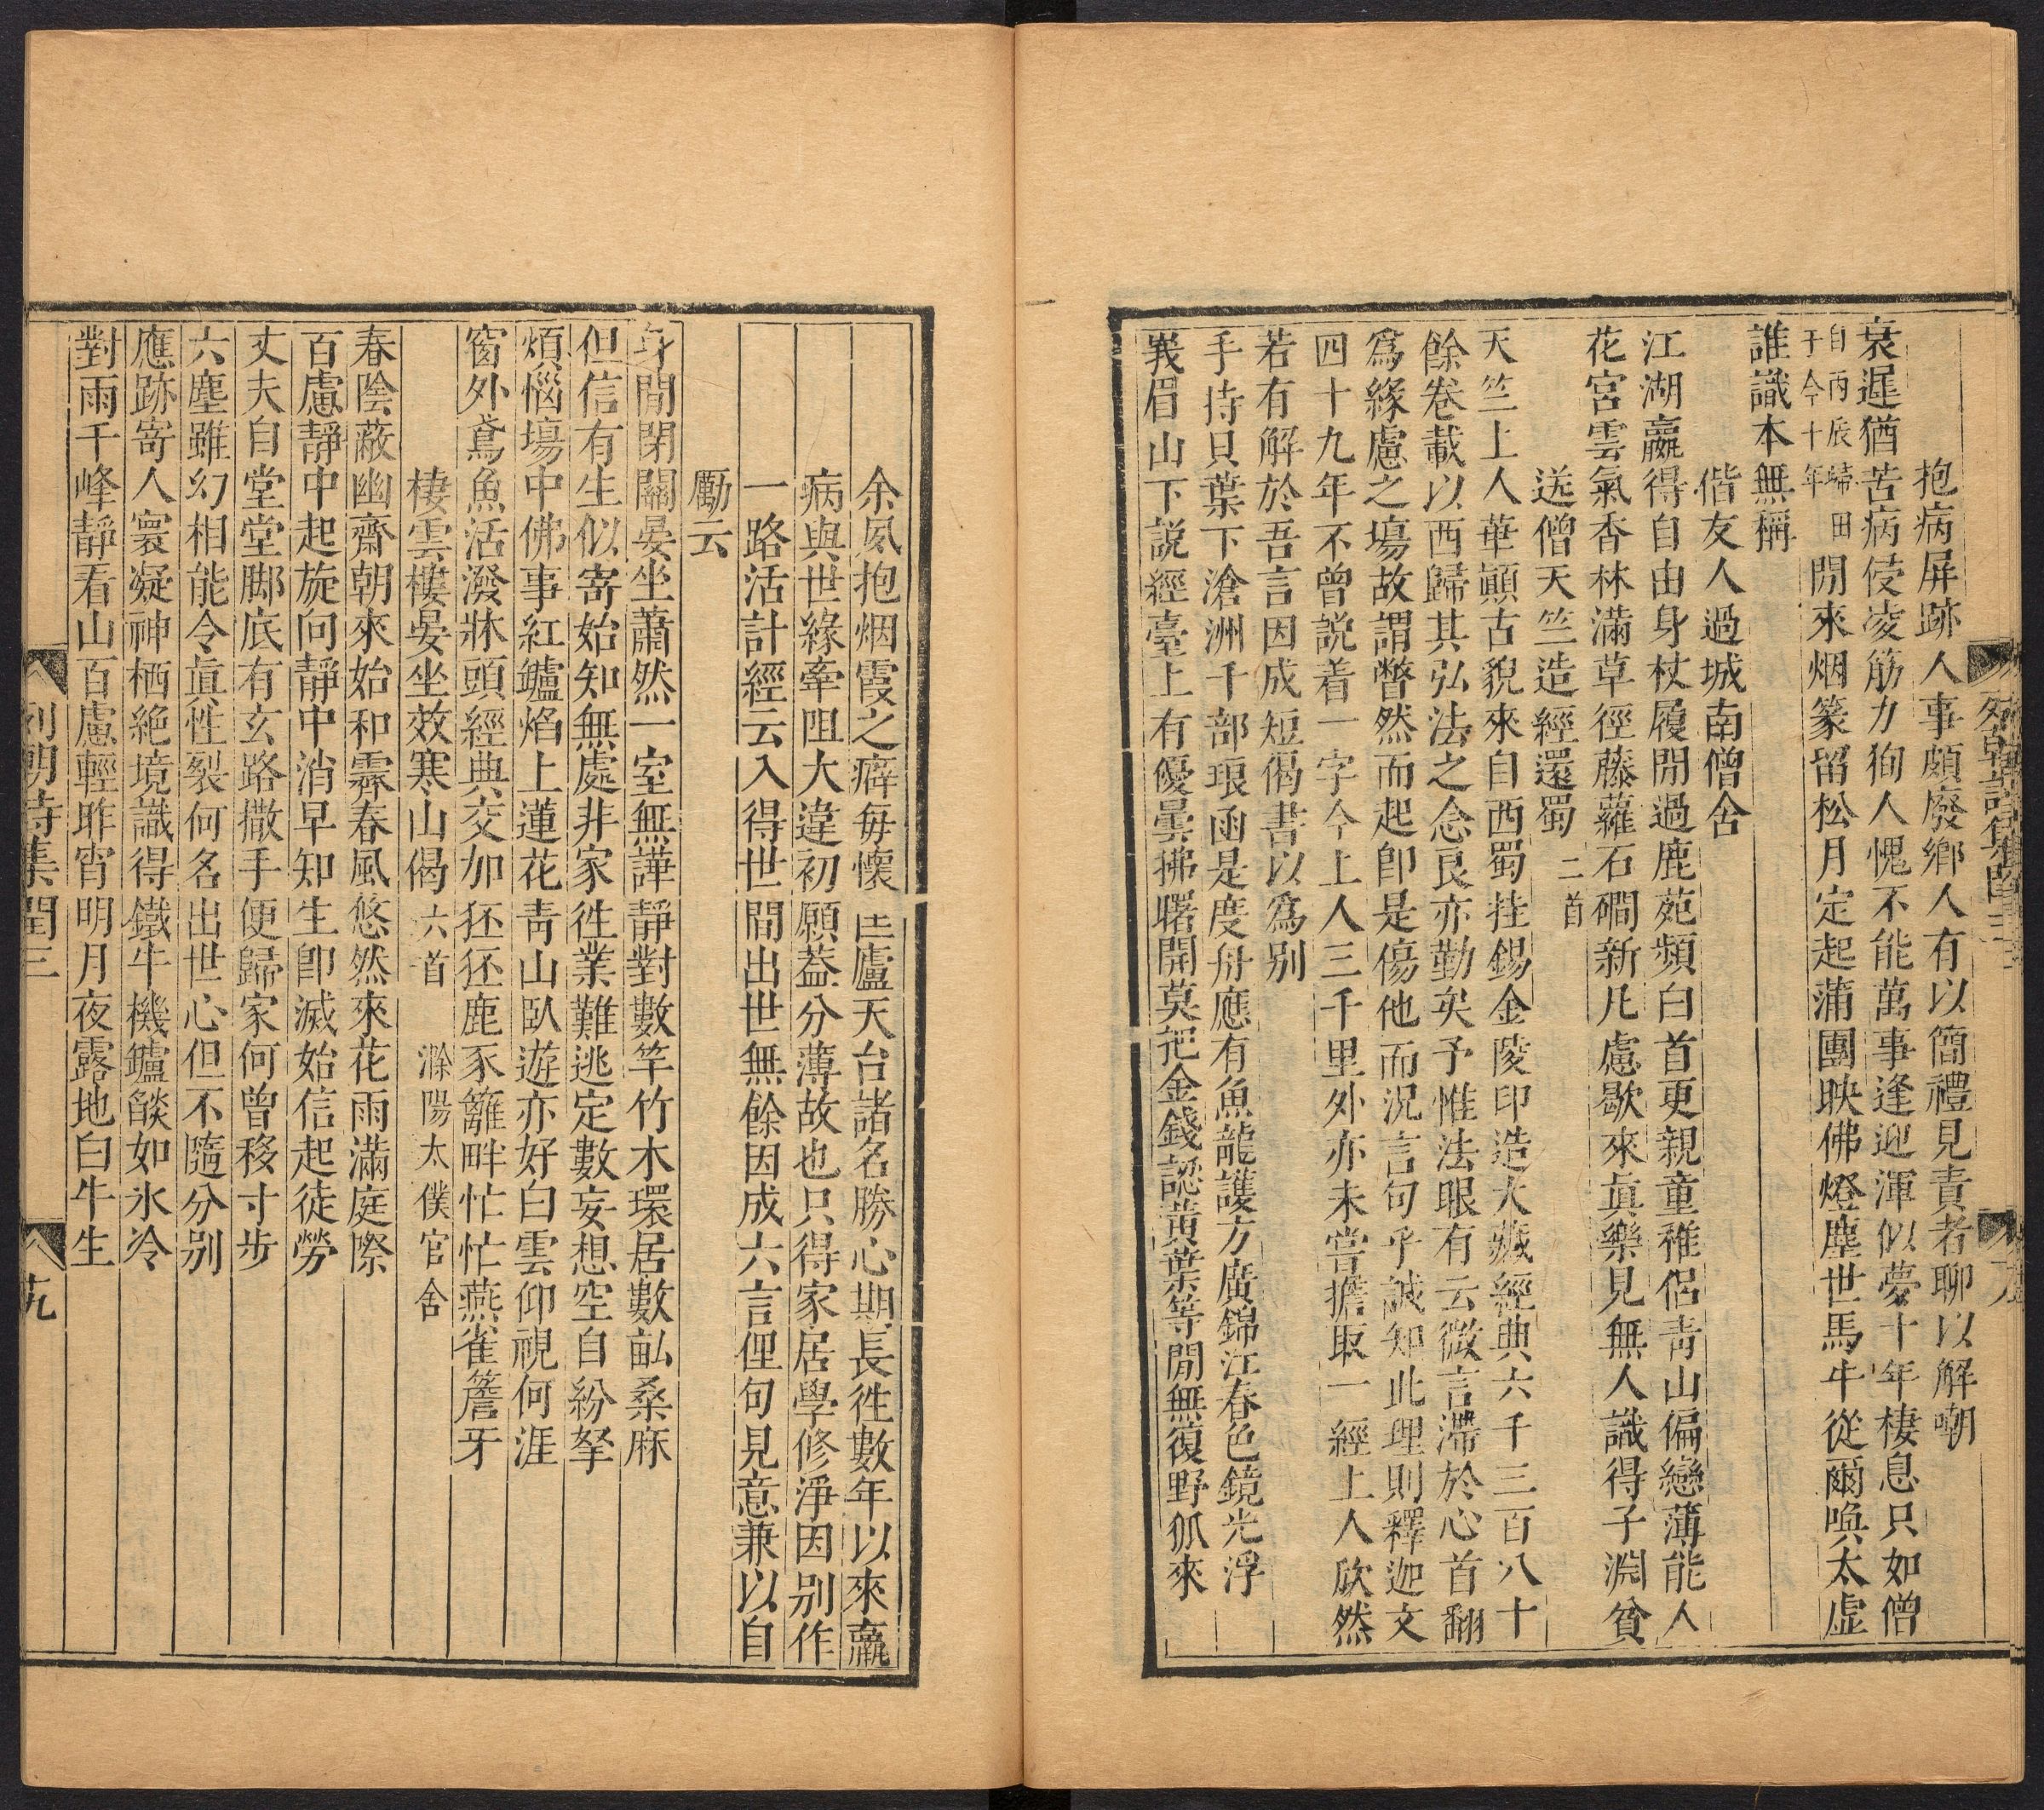 抱病屏跡人事頗廢鄉人有以簡禮見責者聊以解嘲
衰遲猶苦病侵凌筋力狥人愧不能萬事逢迎渾似夢十年棲息只如僧
自丙辰歸田
于今十年
閒來烟篆留松月定起蒲團映佛燈塵世馬牛從爾喚太虛
誰識本無稱
偕友人過城南僧舍
江湖羸得自由身杖履閒過鹿苑頻白首更親童稚侶青山偏戀薄能人
花宮雲氣香林滿草徑藤蘿石磵新凡慮歇來真樂見無人識得子淵貧
送僧天竺造經還蜀 二首
天竺上人華顚古貌來自西蜀挂錫金陵印造大藏經典六千三百八十
餘卷載以西歸其弘法之念良亦勤矣予惟法眼有云微言滯於心首翻
爲緣慮之塲故謂瞥然而起卽是傷他而況言句乎誠知此理則釋迦文
四十九年不曾説着一字今上人三千里外亦未嘗擔取一經上人欣然
若有解於吾言因成短偈書以爲别
手持貝葉下滄洲千部琅函是度舟應有魚龍護方廣錦江春色鏡光浮
峩眉山下説經臺上有優曇拂曙開莫把金錢認黃葉等閒無復野狐來
余夙抱烟霞之癖每懷匡廬天台諸名勝心期長徃數年以來羸
病與世緣牽阻大違初願葢分薄故也只得家居學修淨因别作
一路活計經云入得世間出世無餘因成六言俚句見意兼以自
勵云
身閒閉關晏坐蕭然一室無譁靜對數竿竹木環居數畝桑麻
但信有生似寄始知無處非家徃業難逃定數妄想空自紛拏
煩惱塲中佛事紅鑪焰上蓮花青山臥遊亦好白雲仰視何涯
窗外鳶魚活潑牀頭經典交加狉狉鹿豕籬畔忙忙燕雀簷牙
棲雲樓晏坐效寒山偈 六首 滁陽太僕官舍
春陰蔽幽齋朝來始和霽春風悠然來花雨滿庭際
百慮靜中起旋向靜中消早知生卽滅始信起徒勞
丈夫自堂堂脚底有玄路撒手便歸家何曾移寸步
六塵雖幻相能令眞性裂何名出世心但不隨分别
應跡寄人寰凝神栖絶境識得鐵牛機鑪燄如氷冷
對雨千峰靜看山百慮輕昨宵明月夜露地白牛生
列朝詩集閏三